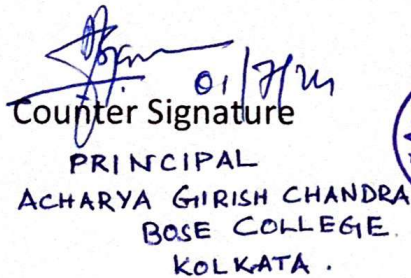 01/7/24
Counter Signature
PRINCIPAL
ACHARYA GIRISH CHANDRA
BOSE COLLEGE.
KOLKATA .